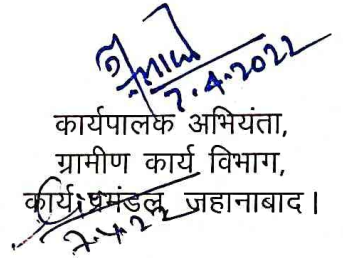 7.4.2022
कार्यपालक अभियंता,
ग्रामीण कार्य विभाग,
कार्य प्रमंडल, जहानाबाद।
7.4.22